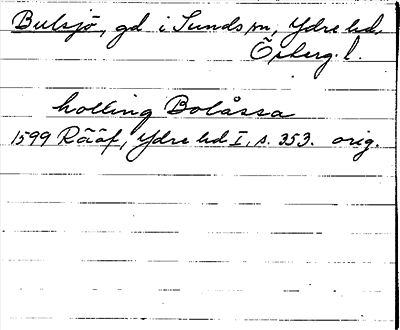 Bulsjö, gd i Sunds sn, Ydre hd,
Österg. l.
holling Bolåssa
1599 Rääf, Ydre hd I, s. 353. orig.